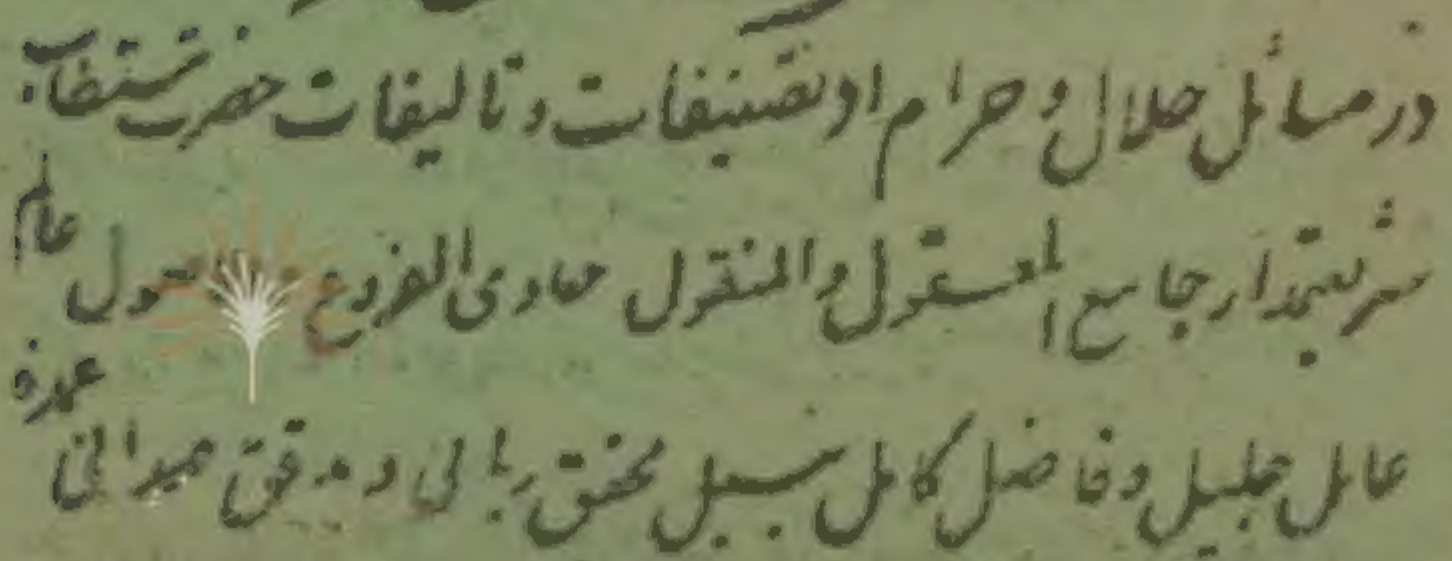 در مسائل حلال و حرام از تصنیفات و تالیفات حضرت مستطاب
شریعتمدار جامع المعقول والمنقول حاوی الفروع والاصول عالم
عامل جلیل و فاضل کامل نبیل محقق ربانی و مدقق صمدانی عمدة